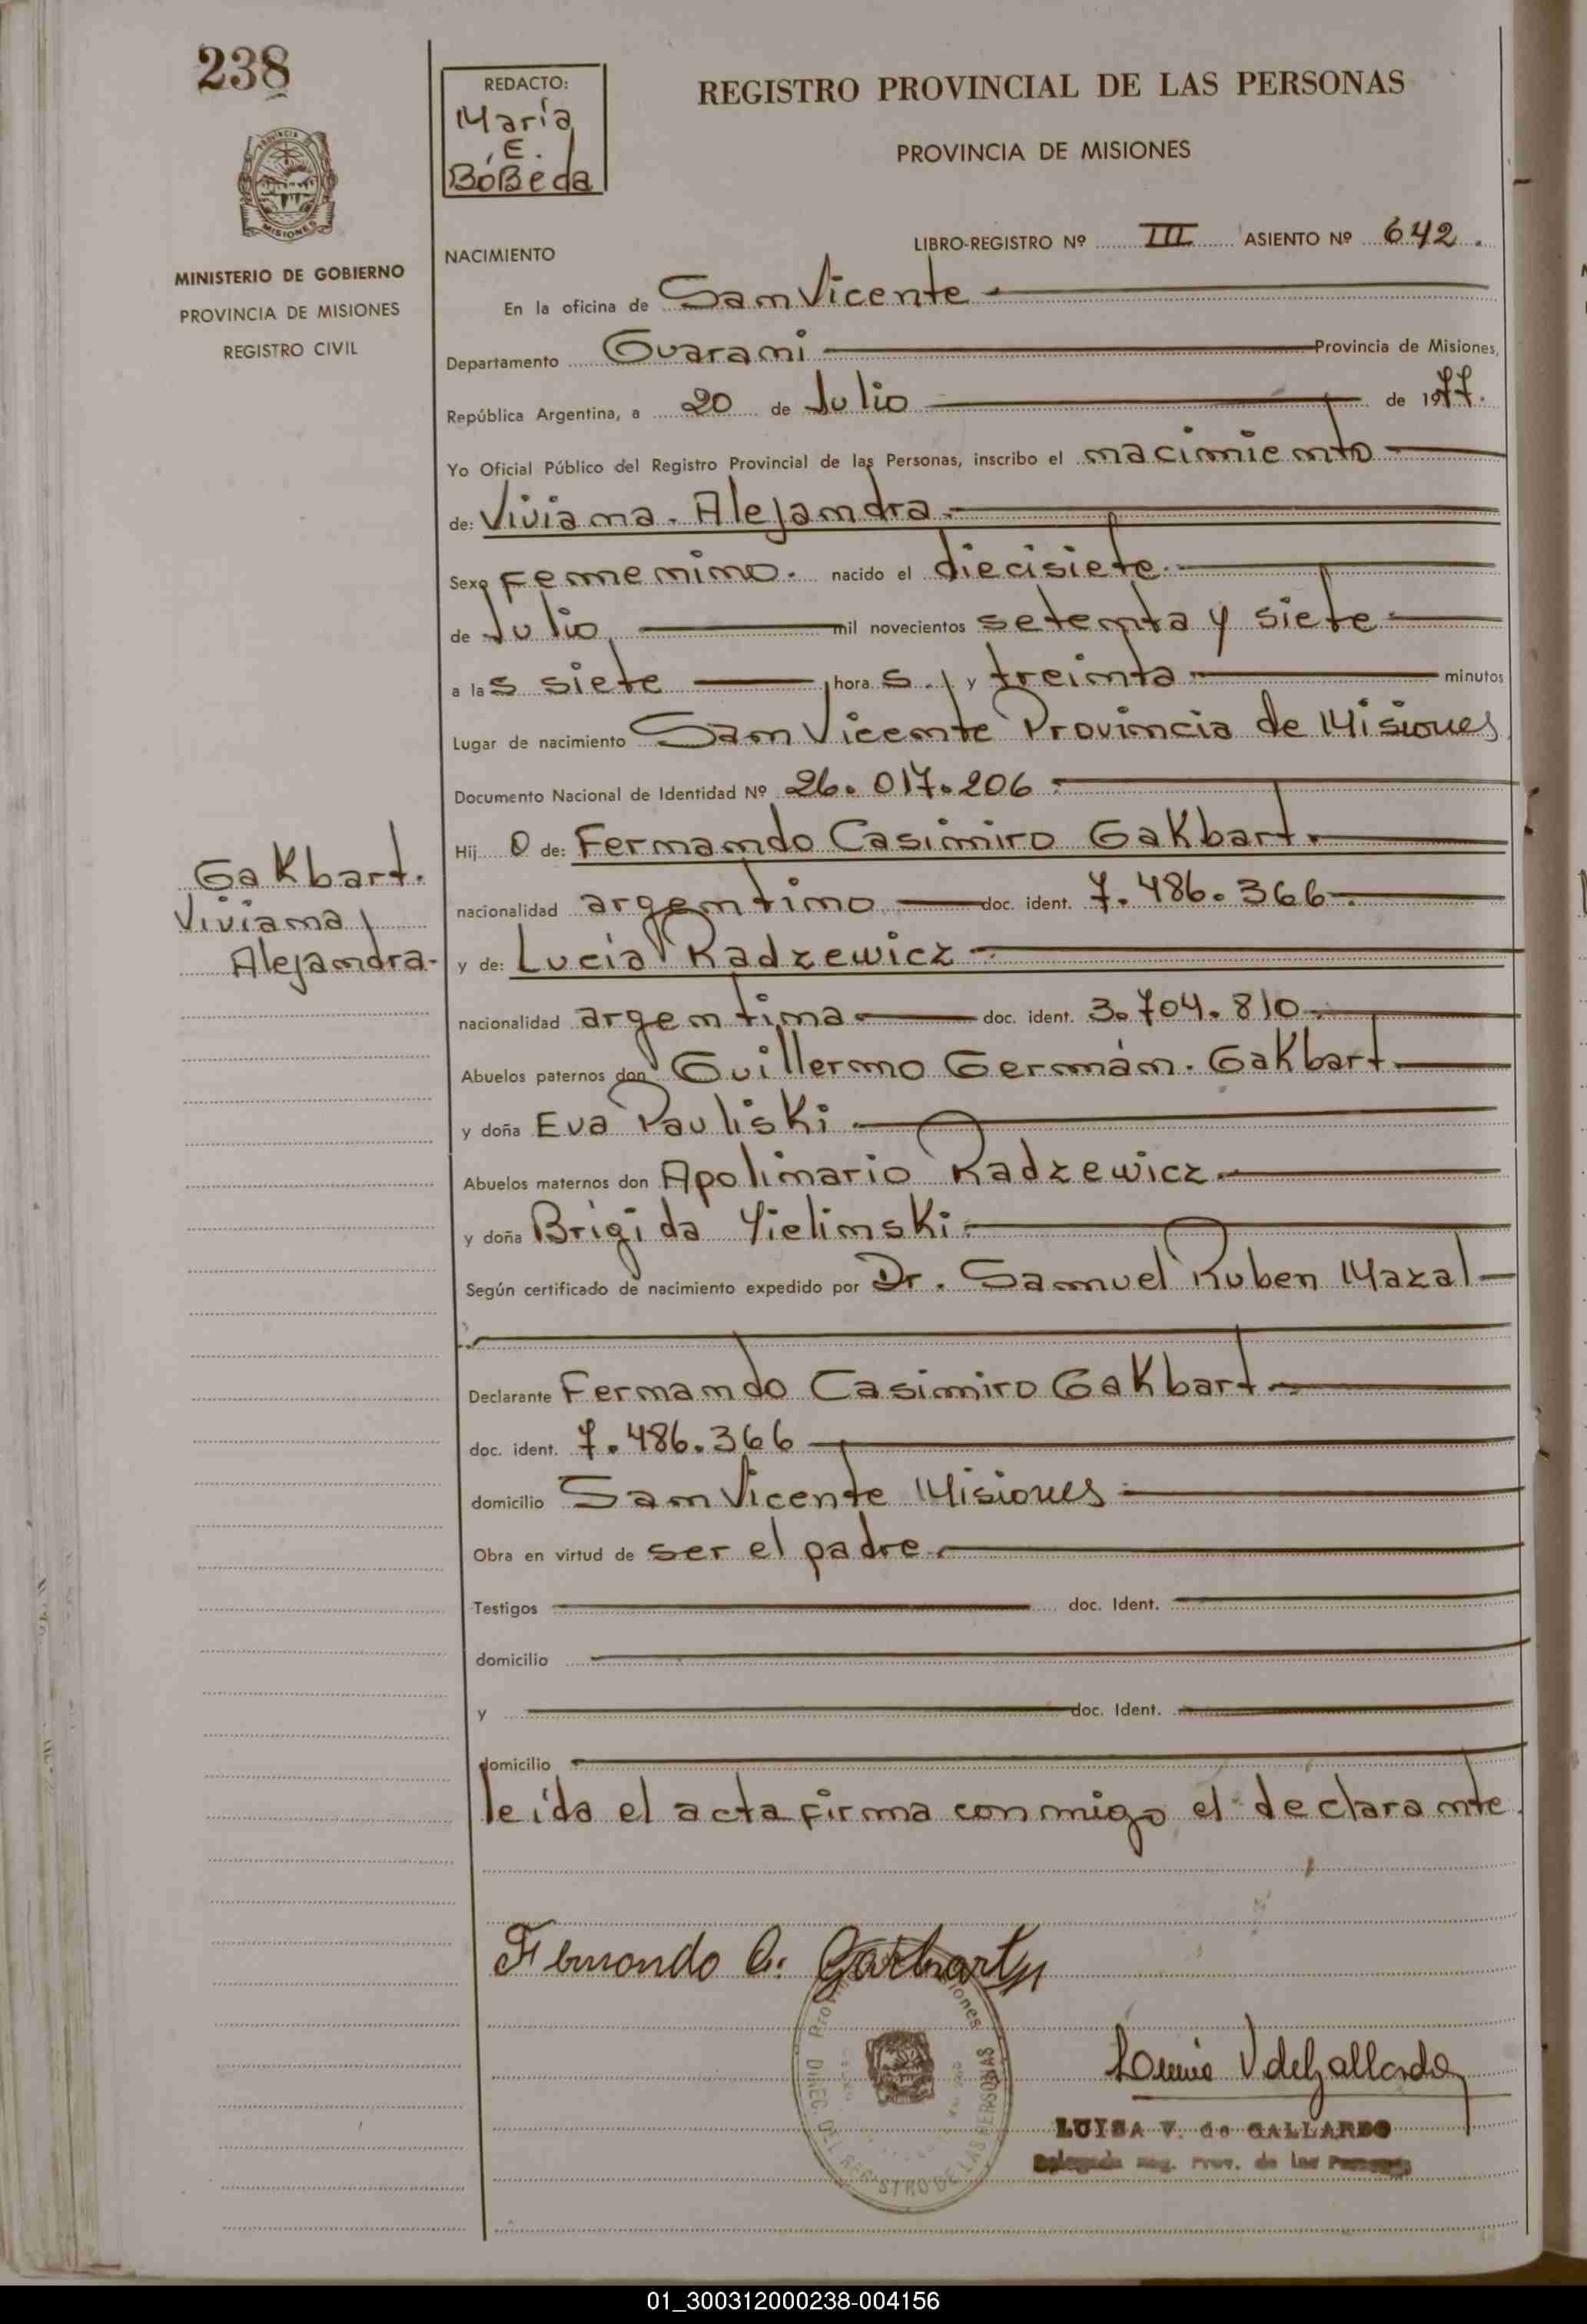 238
REDACTO:
Maria
E.
BóBeda
REGISTRO PROVINCIAL DE LAS PERSONAS
PROVINCIA DE MISIONES
MISIONES
MINISTERIO DE GOBIERNO
PROVINCIA DE MISIONES
REGISTRO CIVIL
LIBRO-REGISTRO Nº III ASIENTO Nº 642.
NACIMIENTO
En la oficina de San Vicente
Departamento Guarani Provincia de Misiones,
República Argentina, a 20 de Julio de 1977.
Yo Oficial Público del Registro Provincial de las Personas, inscribo el nacimiento
de: Viviana. Alejandra.
Sexo Femenino. nacido el diecisiete.
de Julio, mil novecientos setenta y siete
a las siete horas. y treinta minutos
Lugar de nacimiento San Vicente Provincia de Misiones
Documento Nacional de Identidad Nº 26.017.206.
Hijo de: Fernando Casimiro Gakbart.
Gakbart.
Viviana
Alejandra.
nacionalidad argentino doc. ident. 7.486.366
y de: Lucia Radzewicz
nacionalidad argentina doc. ident. 3.704.810
Abuelos paternos don Guillermo Germán. Gakbart.
y doña Eva Pauliski
Abuelos maternos don Apolinario Radzewicz.
y doña Brigida Yielinski.
Según certificado de nacimiento expedido por Dr. Samuel Ruben Mazal
Declarante Fernando Casimiro Gakbart
doc. ident. 7.486.366
domicilio San Vicente Misiones
Obra en virtud de ser el padre
Testigos doc. Ident.
domicilio
y doc. Ident.
domicilio
leída el acta firma conmigo el declarante
Fernando C. Gakbart
DIREC. DEL REGISTRO DE LAS PERSONAS
LUISA V. de GALLARDO
Delegada Reg. Prov. de las Personas
01_300312000238-004156